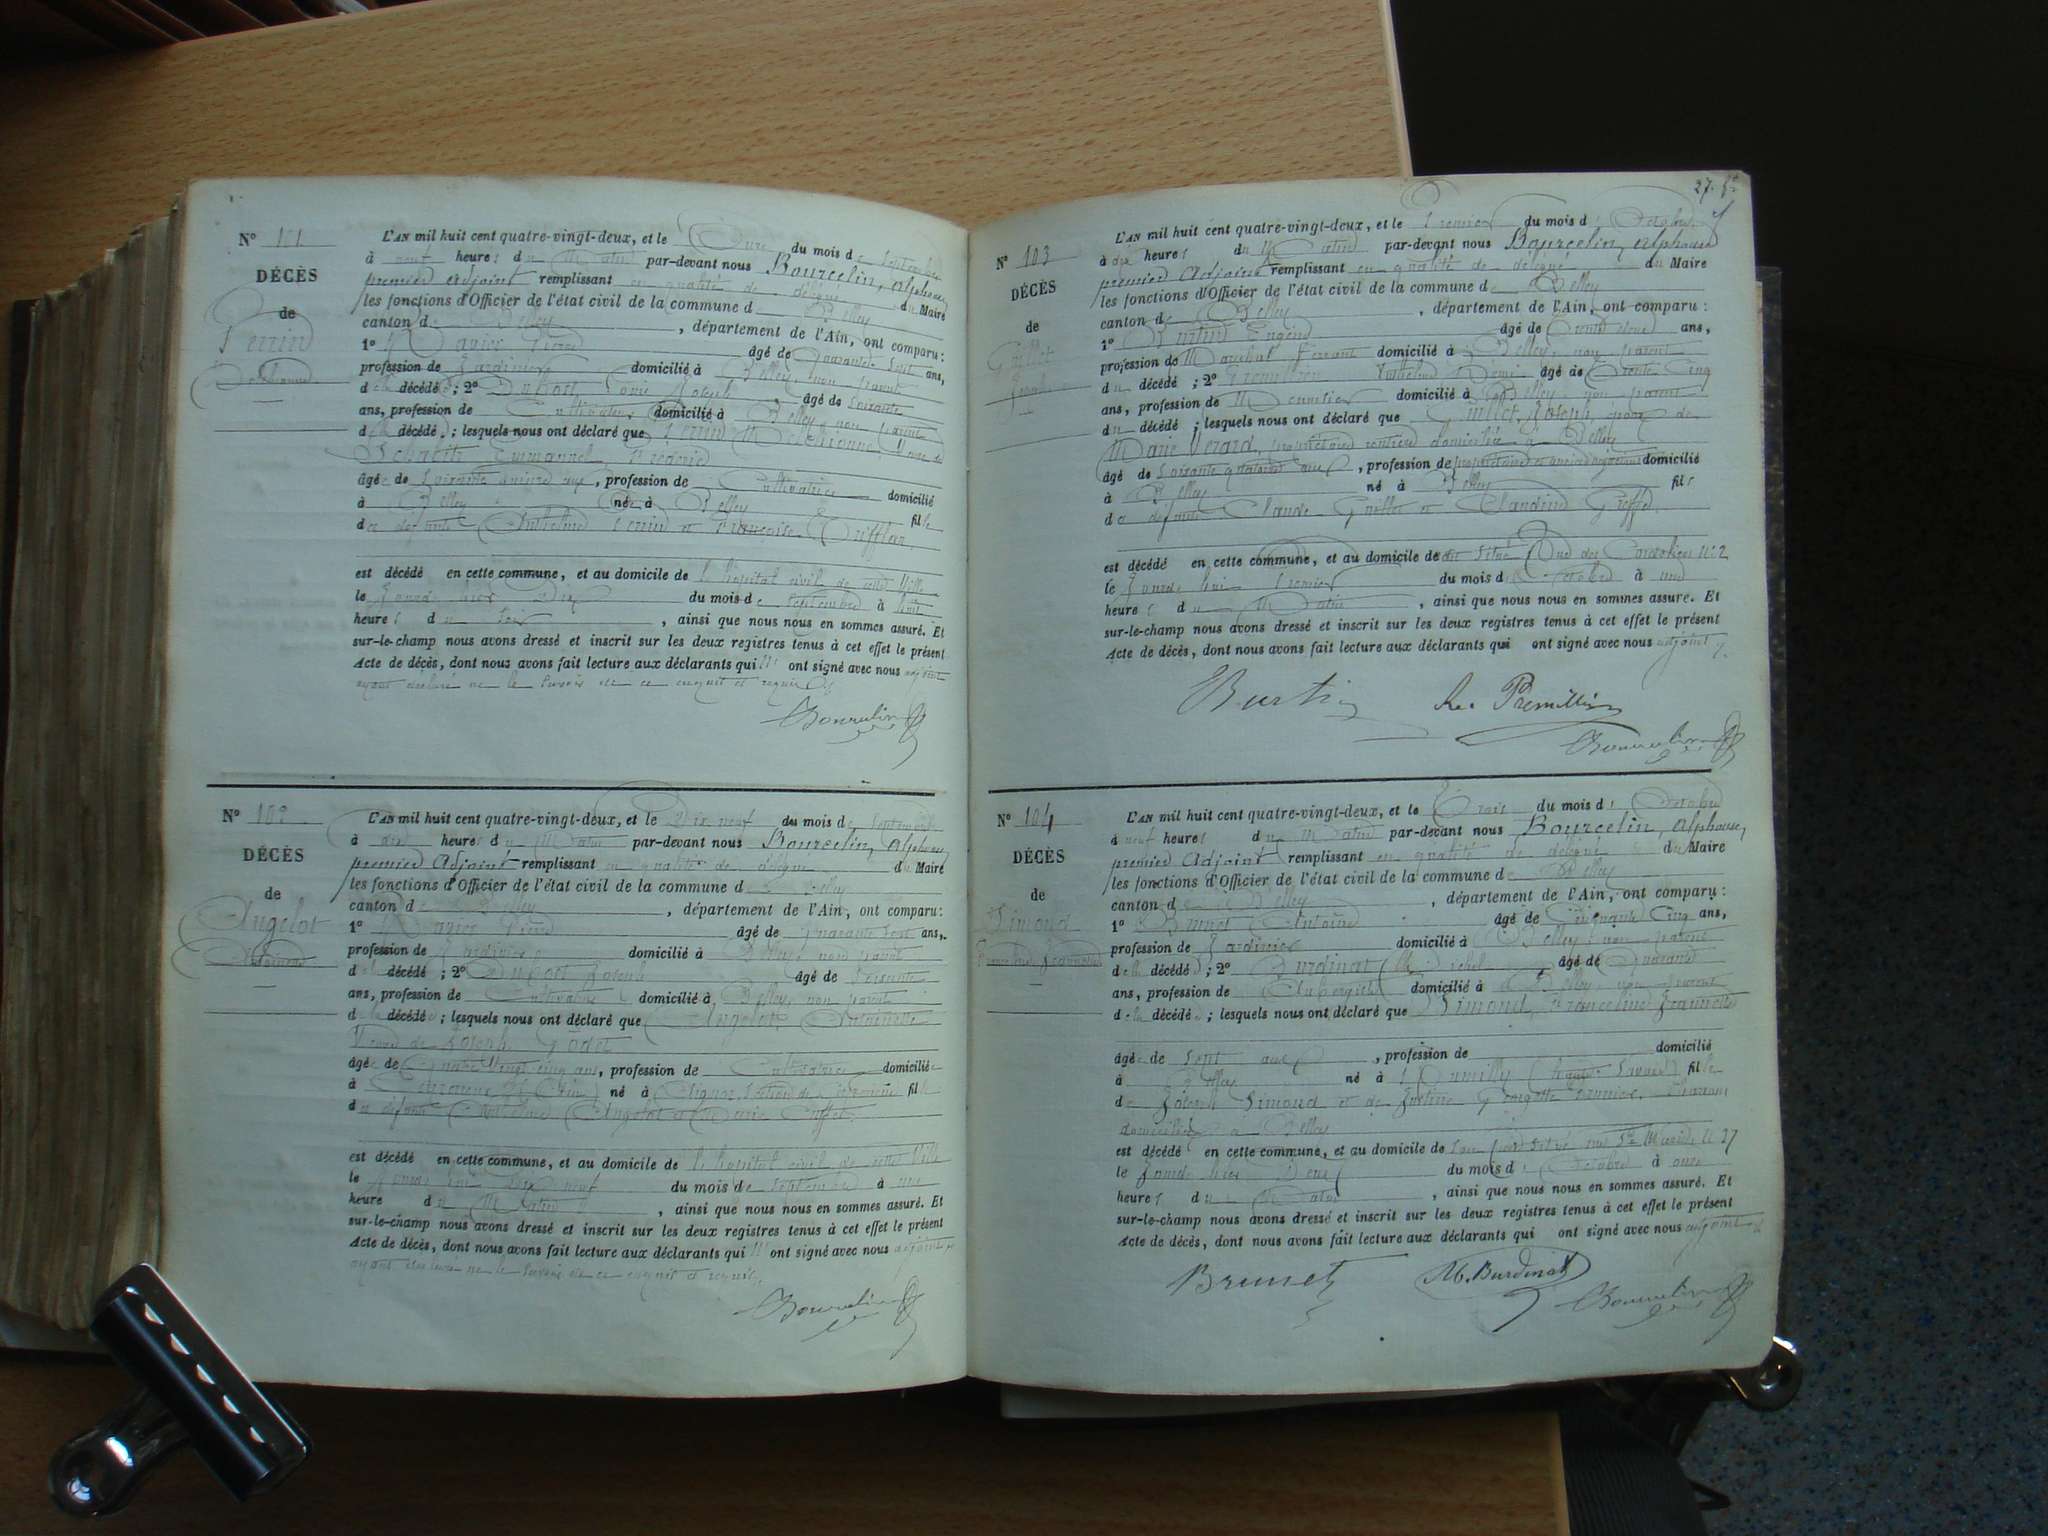 N° 101
DÉCÈS
de
Perrin
L'AN mil huit cent quatre-vingt-deux, et le Onze du mois de Septembre
à neuf heures du Matin par-devant nous Bourcelin, Alphonse,
premier Adjoint remplissant en qualité de délégué du Maire
les fonctions d'Officier de l'état civil de la commune de Belley
canton de Belley, département de l'Ain, ont comparu :
1° Pierre âgé de quarante-sept ans,
profession de Jardinier domicilié à Belley, non parent
de la décédée ; 2° Dupost, Joseph âgé de soixante
ans, profession de Cultivateur domicilié à Belley, non parent
de la décédée ; lesquels nous ont déclaré que Perrin Veuve de
Emmanuel Frédéric
âgée de soixante ans, profession de Cultivatrice domicilié
à Belley née à Belley fille
des défunts Anthelme Perrin et Françoise
est décédé en cette commune, et au domicile de l'hôpital civil de cette Ville
le Jour d'hier Dix du mois de Septembre à huit
heures du Soir, ainsi que nous nous en sommes assuré. Et
sur-le-champ nous avons dressé et inscrit sur les deux registres tenus à cet effet le présent
Acte de décès, dont nous avons fait lecture aux déclarants qui n'ont signé avec nous adjoint
ayant déclaré ne le savoir de ce enquis et requis.
Bourcelin
N° 102
DÉCÈS
de
Angelot
Antoinette
L'AN mil huit cent quatre-vingt-deux, et le Dix neuf du mois de Septembre
à dix heures du Matin par-devant nous Bourcelin, Alphonse,
premier Adjoint remplissant en qualité de délégué du Maire
les fonctions d'Officier de l'état civil de la commune de Belley
canton de Belley, département de l'Ain, ont comparu :
1° Pierre âgé de quarante sept ans,
profession de Jardinier domicilié à Belley, non parent
de la décédée ; 2° Dupost Joseph âgé de Soixante
ans, profession de Cultivateur domicilié à Belley, non parent
de la décédée ; lesquels nous ont déclaré que Angelot Antoinette
Veuve de Joseph Godet
âgée de Quatre Vingt cinq ans, profession de Cultivatrice domiciliée
à (Ain) née à fille
de défunts Anthelme Angelot et Marie
est décédé en cette commune, et au domicile de l'hôpital civil de cette Ville
le Jourd'hui Dix neuf du mois de Septembre à une
heure du Matin, ainsi que nous nous en sommes assuré. Et
sur-le-champ nous avons dressé et inscrit sur les deux registres tenus à cet effet le présent
Acte de décès, dont nous avons fait lecture aux déclarants qui n'ont signé avec nous adjoint
ayant déclaré ne le savoir de ce enquis et requis.
Bourcelin
27.
N° 103
DÉCÈS
de
Guillet
Joseph
L'AN mil huit cent quatre-vingt-deux, et le Premier du mois d'Octobre
à dix heures du Matin par-devant nous Bourcelin, Alphonse
premier Adjoint remplissant en qualité de délégué du Maire
les fonctions d'Officier de l'état civil de la commune de Belley
canton de Belley, département de l'Ain, ont comparu :
1° Burtin Eugène âgé de Trente deux ans,
profession de Maréchal Ferrant domicilié à Belley, non parent
du décédé ; 2° Premillieu Anthelme René âgé de Trente Cinq
ans, profession de Menuisier domicilié à Belley, non parent
du décédé ; lesquels nous ont déclaré que Guillet, Joseph, époux de
Marie Verard, propriétaire rentière domiciliée à Belley
âgé de Soixante quatorze ans, profession de propriétaire et ancien négociant domicilié
à Belley né à Belley fils
de défunts Claude Guillet et Claudine Greffe
est décédé en cette commune, et au domicile de situé Rue des Cordeliers N° 2
le Jourd'hui Premier du mois d'Octobre à une
heure du Matin, ainsi que nous nous en sommes assuré. Et
sur-le-champ nous avons dressé et inscrit sur les deux registres tenus à cet effet le présent
Acte de décès, dont nous avons fait lecture aux déclarants qui ont signé avec nous adjoint
Burtin Re. Premillieu
Bourcelin
N° 104
DÉCÈS
de
Simond
Franceline Jeannette
L'AN mil huit cent quatre-vingt-deux, et le Trois du mois d'Octobre
à neuf heures du Matin par-devant nous Bourcelin, Alphonse,
premier Adjoint remplissant en qualité de délégué du Maire
les fonctions d'Officier de l'état civil de la commune de Belley
canton de Belley, département de l'Ain, ont comparu :
1° Brunet Antoine âgé de Cinquante Cinq ans,
profession de Jardinier domicilié à Belley, non parent
de la décédée ; 2° Burdinat Michel, âgé de Quarante
ans, profession de Aubergiste domicilié à Belley, non parent
de la décédée ; lesquels nous ont déclaré que Simond, Franceline Jeannette
âgée de Sept ans, profession de domicilié
à Belley né à Rumilly (Haute Savoie) fille
de Joseph Simond et de Justine Georgette
domiciliés à Belley
est décédé en cette commune, et au domicile de situé rue N° 27
le Jour d'hier Deux du mois d'Octobre à onze
heures du Matin, ainsi que nous nous en sommes assuré. Et
sur-le-champ nous avons dressé et inscrit sur les deux registres tenus à cet effet le présent
Acte de décès, dont nous avons fait lecture aux déclarants qui ont signé avec nous adjoint
Brunet M. Burdinat
Bourcelin